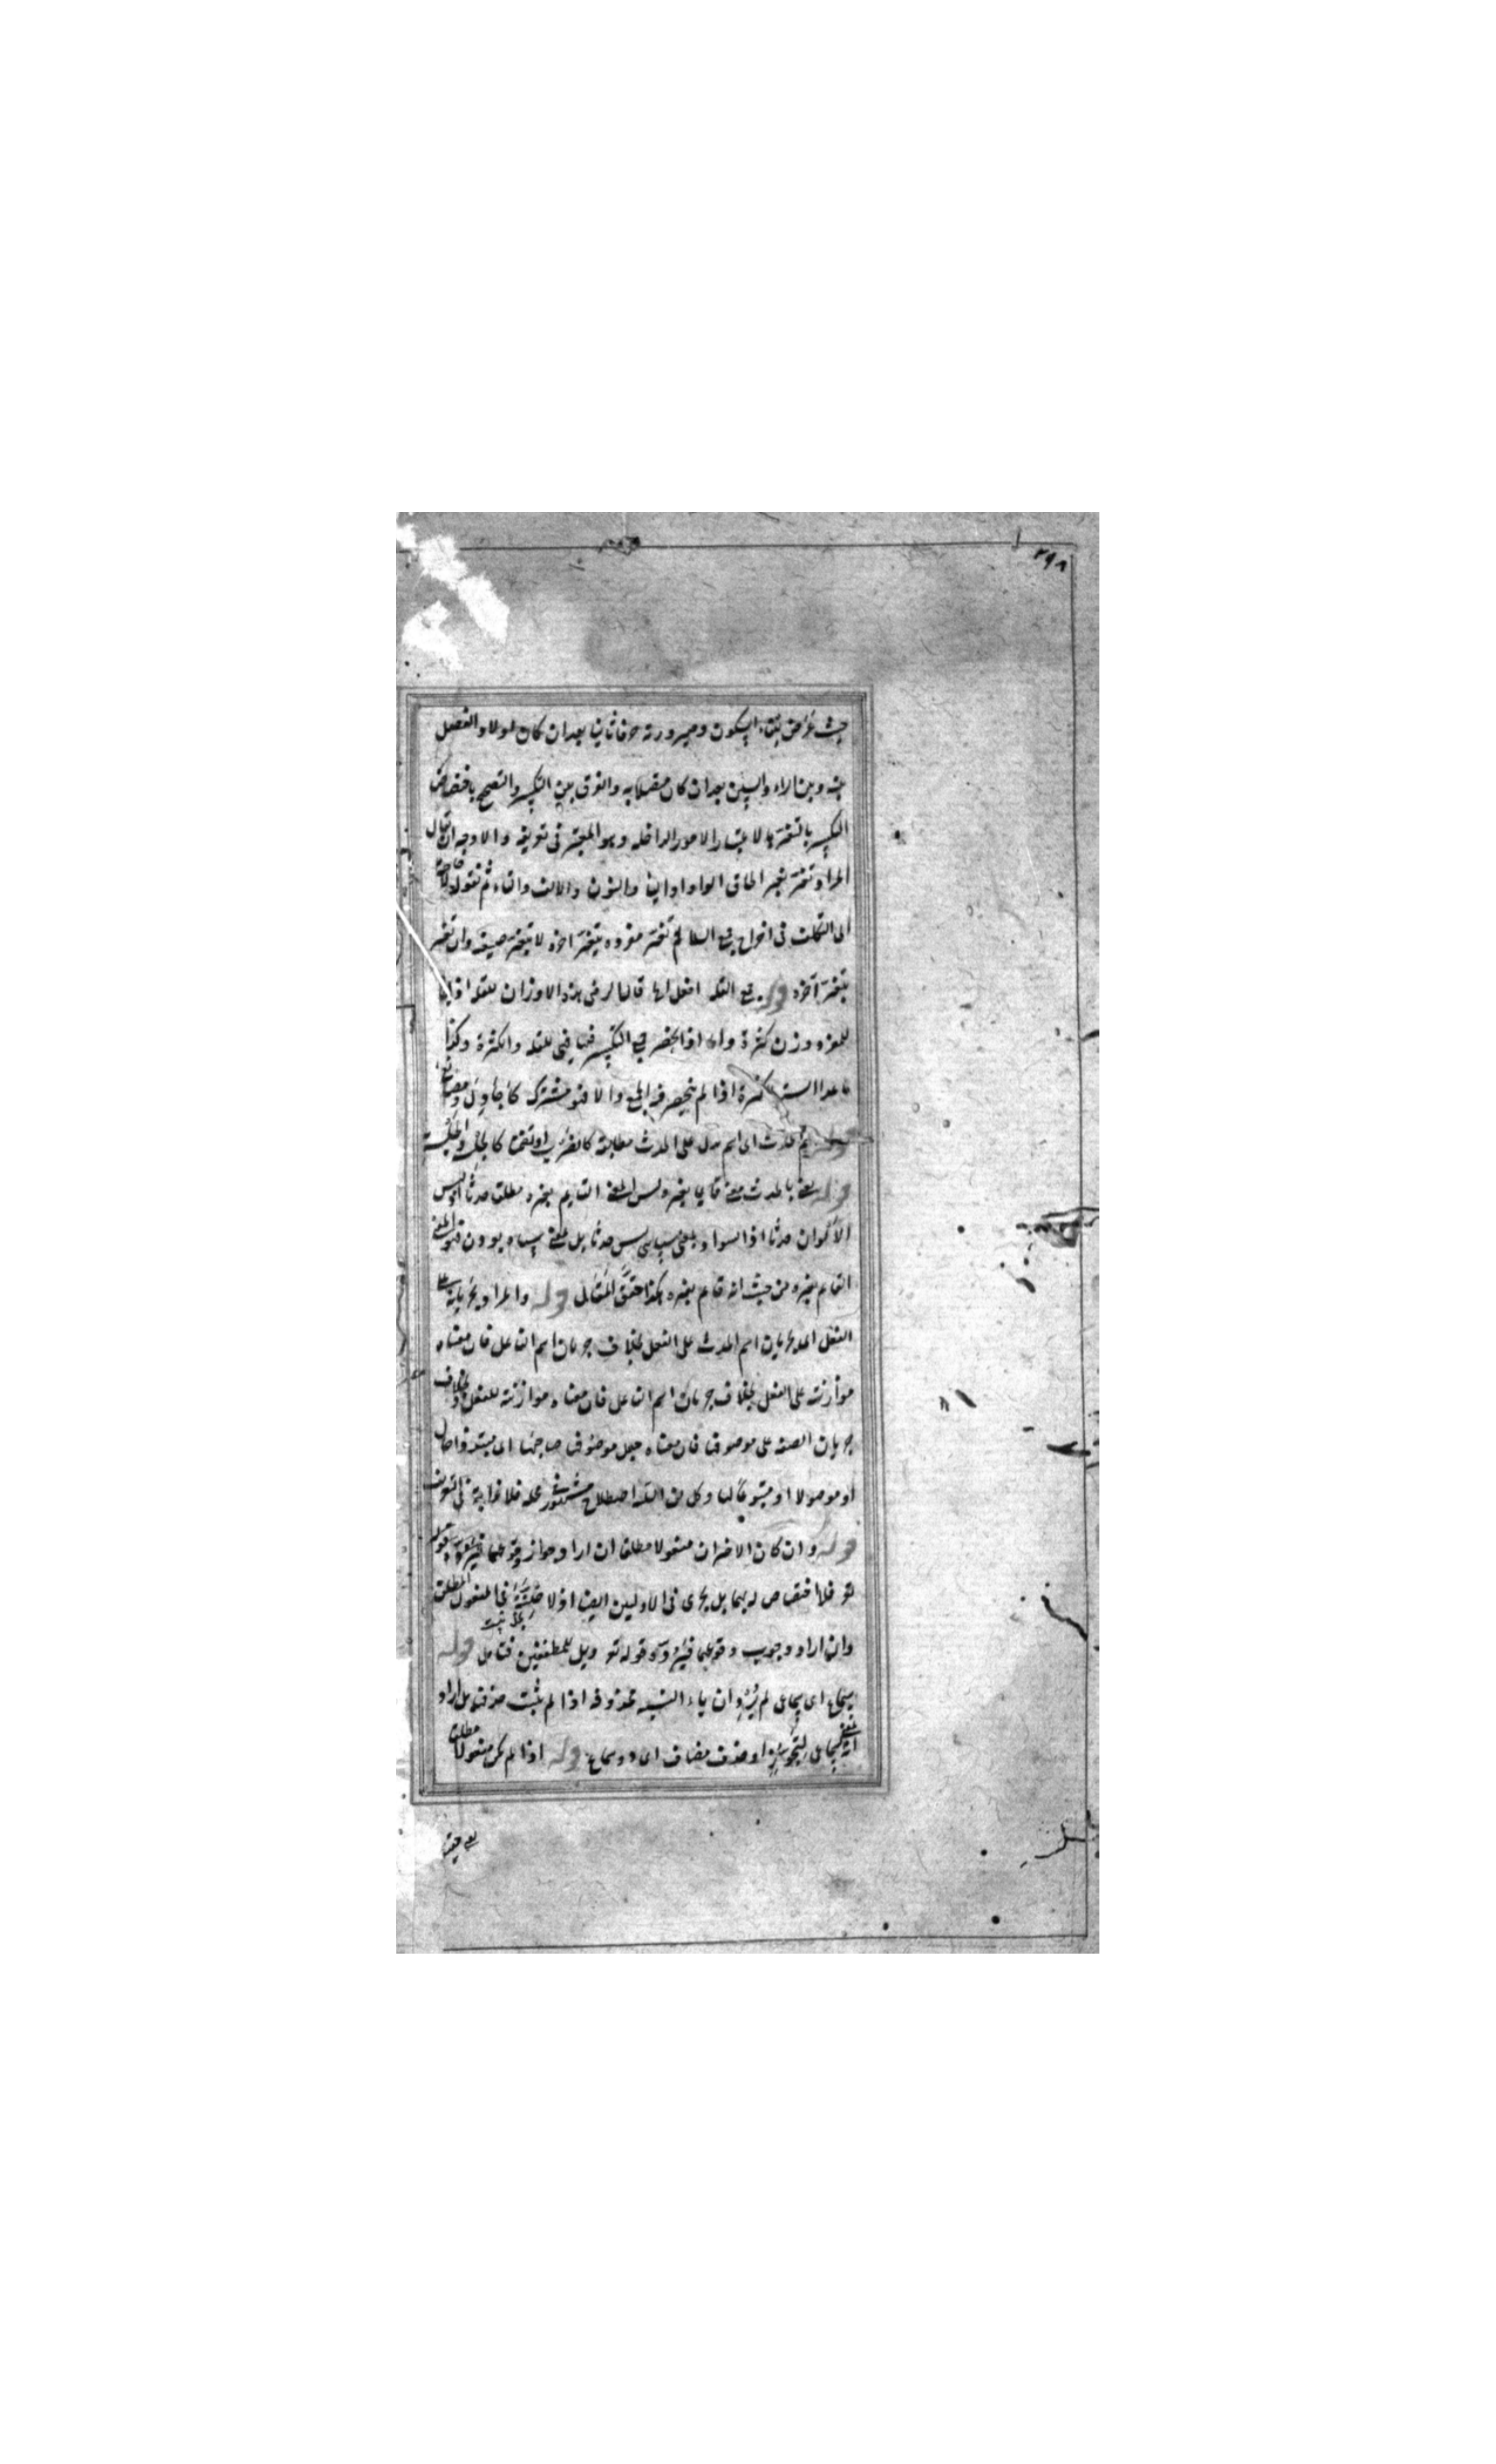 ٢٩٨
حيث عرض بتاء السكون وصيرورته حرفا ثانيا بعد ان كان لولا والفصل
بينه وبين الراء والسين بعد ان كان متصلا به والفرق بين التكسير والتصحيح باختصاص
التكسير بالتغير لا باعتبار الامور الداخلة وهو المعتبر فى تعريفه والاوجه ان يقال
المراد تغير بغير الحاق الواو او الياء والنون والالف والتاء ثم نقول لا حاجة
الى التكلف فى اخراج جمع السالم تغير مفرده بتغير آخره لا بتغير صيغه وان تغير
بتغير آخره قوله جمع القلة افعل الخ قال الرضى هذه الاوزان للقلة اذا جاء
للمفرد وزن كثرة واما اذا انحصر جمع التكسير فيها فهى للقلة والكثرة وكذا
ما عدا الستة للكثرة اذا لم ينحصر فيه الجمع والا فهو مشترك كأجاول ومصانع
قوله اسم الحدث اى اسم يدل على الحدث مطابقة كالضرب او تضمنا كالجلسة والجلسة
قوله يعنى بالحدث معنى قائما بغيره ليس المعنى القايم بغيره مطلقا حدثا اذ ليس
الالوان حدثا اذ السواد بمعنى سياهى ليس حدثا بل بمعنى سياه بودن فهو المعنى
القايم بغيره من حيث انه قايم بغيره هكذا حقق المقال قوله والمراد بجريانه على
الفعل الخ جريان اسم الحدث على الفعل بخلاف جريان اسم الفاعل فان معناه
موازنته على الفعل بخلاف جريان اسم الفاعل فان معناه موازنته للفعل وبخلاف
جريان الصفة على موصوف فان معناه جعل موصوف صاحبها اى مبتدأ وذا حال
او موصولا او متبوعا لها وكل من الثلثة اصطلاح مشهور فى محله فلا غرابة فى التعريف
قوله وان كان الاخيران مفعولا مطلقا ان اراد جواز وقوعهما
فلا اختصاص له بهما بل يجرى فى الاولين ايضا اذ لا فى المفعول المطلق
وان اراد وجوب وقوعهما قوله تع ويل للمطففين فتأمل قوله
سماع اى سماعى لم يرد ان ياء النسبة محذوفة اذ لم يثبت حذفها بل اراد
انه بمعنى سماعى او حذف مضاف اى ذو سماع قوله اذا لم يكن مفعولا مطلقا